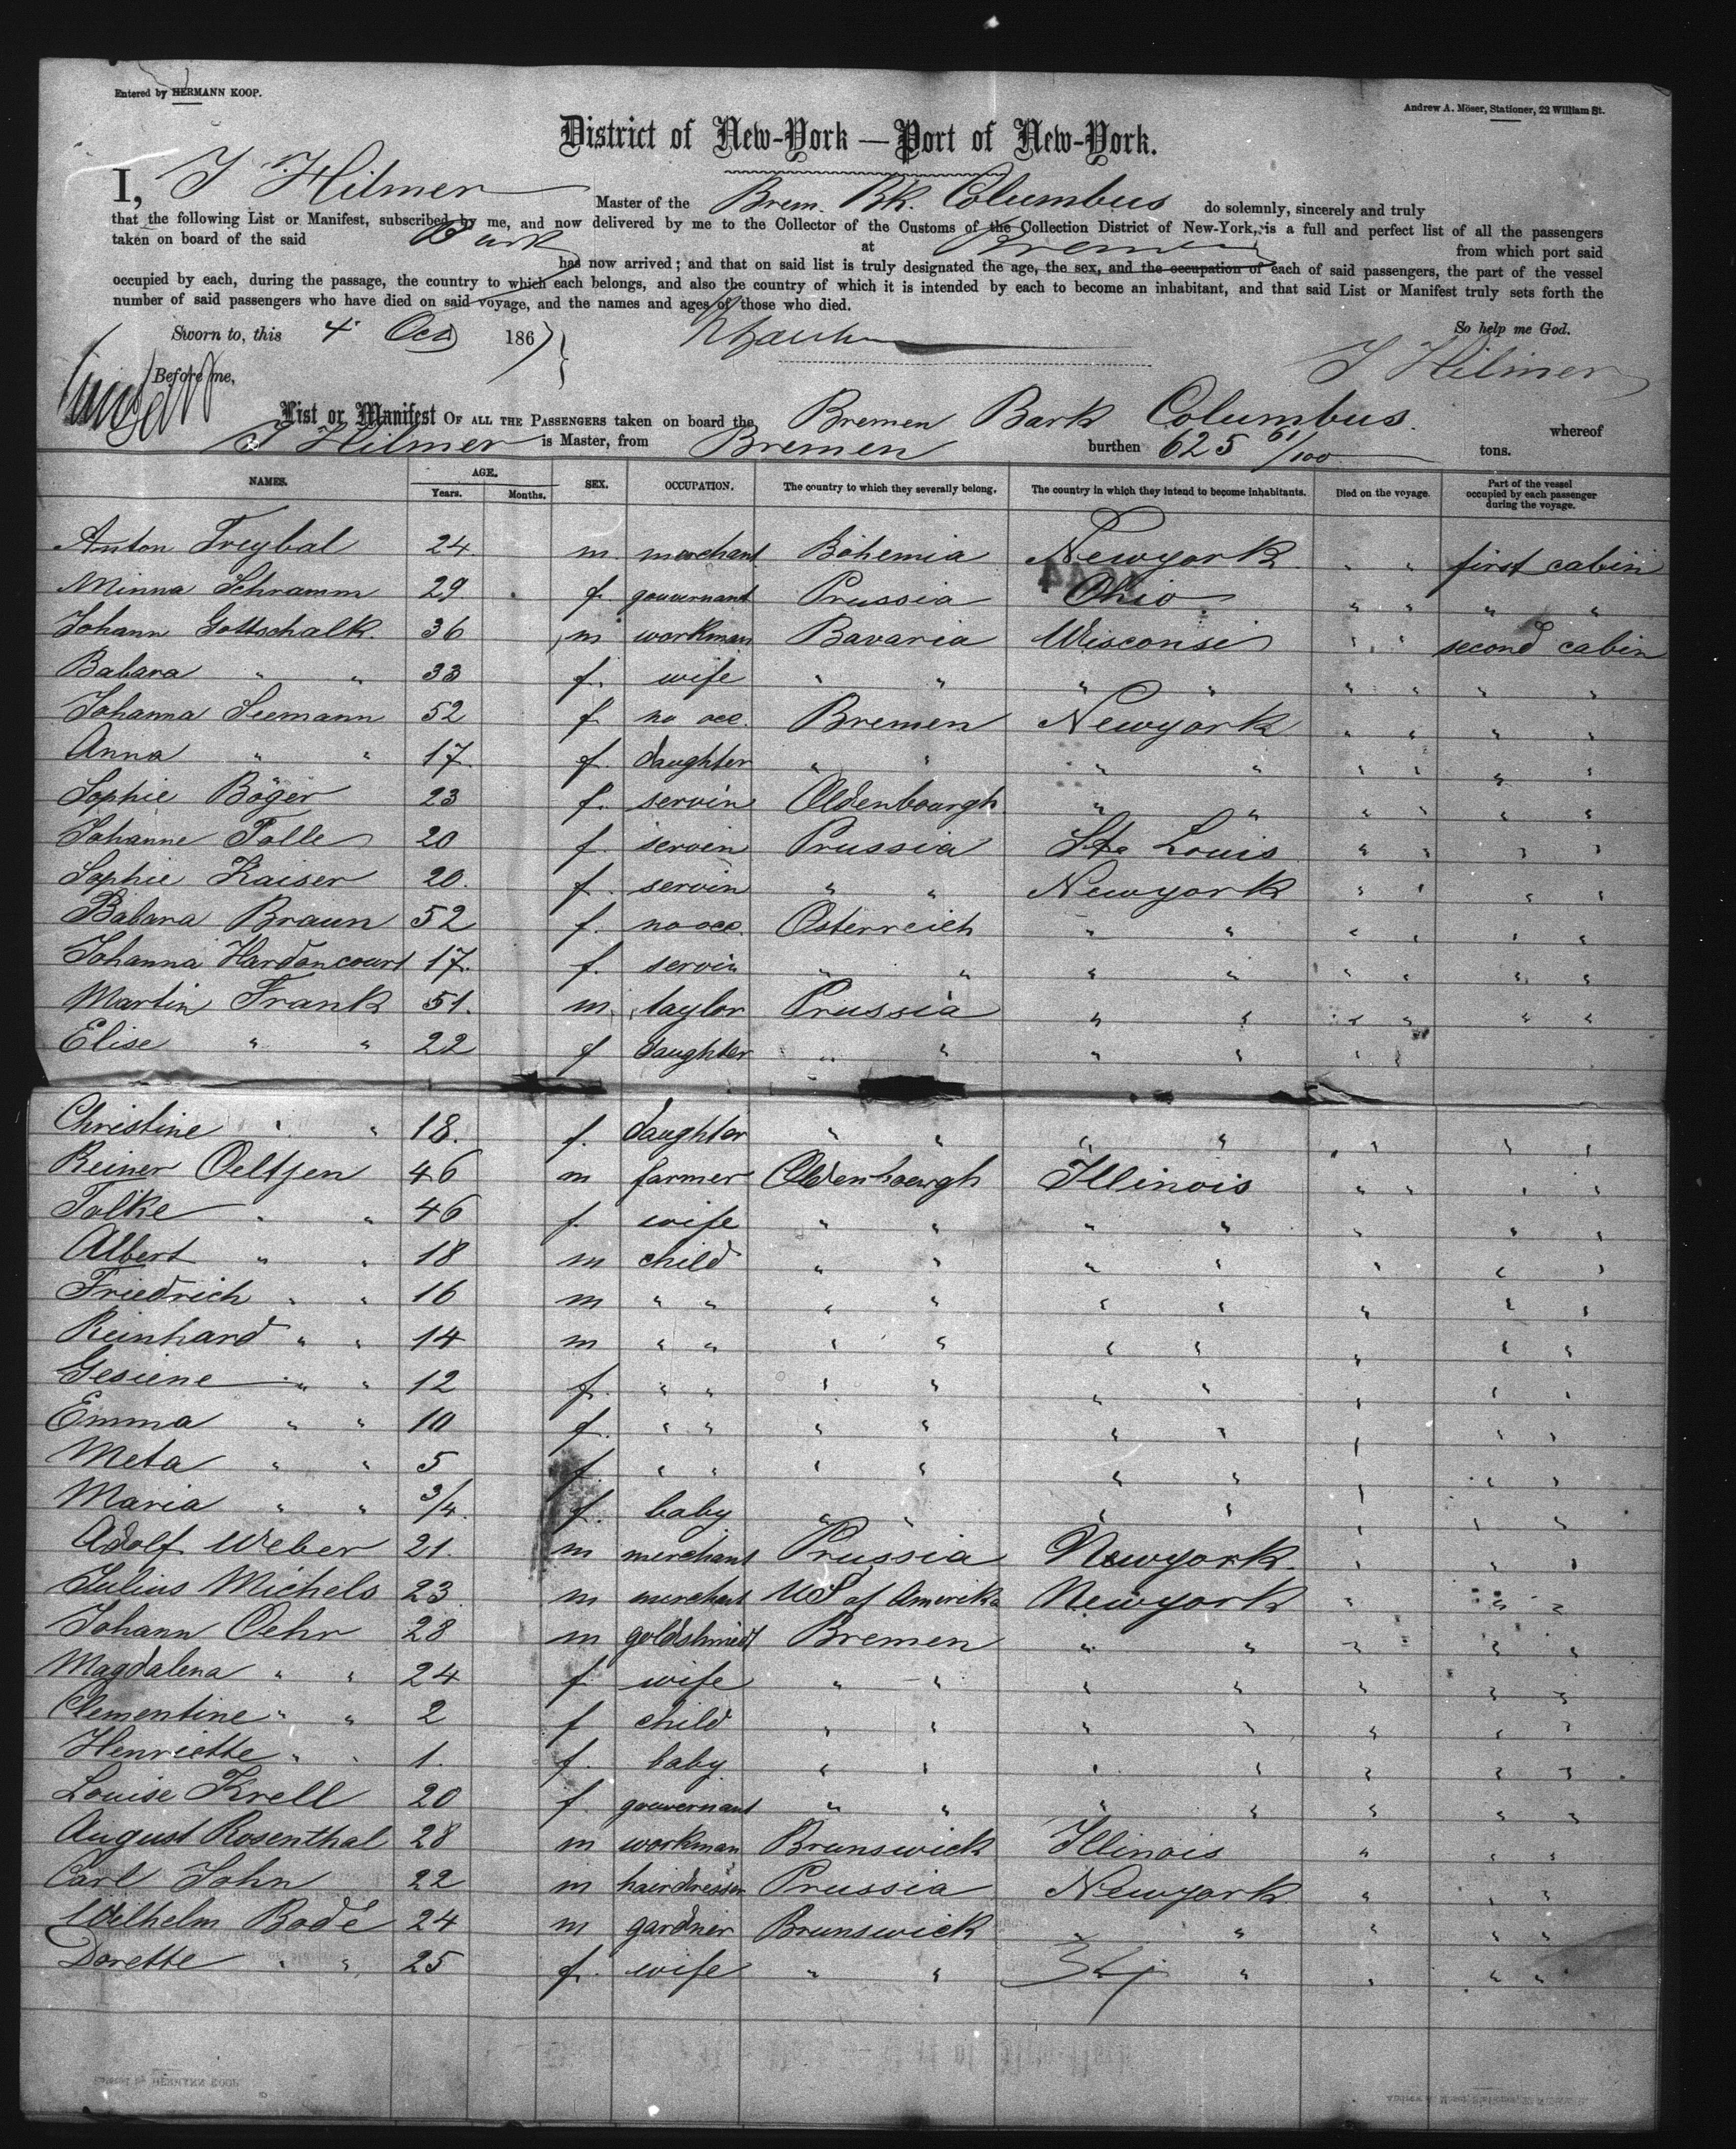 Entered by HERMANN KOOP.
Andrew A. Möser, Stationer, 22 William St.
District of New-York — Port of New-York.
I, J Hilmer Master of the Brem. Bk. Columbus do solemnly, sincerely and truly
that the following List or Manifest, subscribed by me, and now delivered by me to the Collector of the Customs of the Collection District of New-York, is a full and perfect list of all the passengers
taken on board of the said Bark at Bremen from which port said
has now arrived; and that on said list is truly designated the age, the sex, and the occupation of each of said passengers, the part of the vessel
occupied by each, during the passage, the country to which each belongs, and also the country of which it is intended by each to become an inhabitant, and that said List or Manifest truly sets forth the
number of said passengers who have died on said voyage, and the names and ages of those who died.
Sworn to, this 4 Oct 1867 So help me God.
Before me, J Hilmer
List or Manifest OF ALL THE PASSENGERS taken on board the Bremen Bark Columbus. whereof
J Hilmer is Master, from Bremen burthen 625 61/100 tons.
NAMES. AGE. Years. Months. SEX. OCCUPATION. The country to which they severally belong. The country in which they intend to become inhabitants. Died on the voyage. Part of the vessel occupied by each passenger during the voyage.
Anton Freybal 24. m. merchant Bohemia Newyork " " first cabin
Minna Schramm 29. f. gouvernant Prussia Ohio " " " "
Johann Gottschalk. 36 m workman Bavaria Wisconsi " " second cabin
Babara " " 33 f. wife " " " " " " " "
Johanna Seemann 52 f. no occ. Bremen Newyork " " " "
Anna " " 17. f. daughter " " " " " " " "
Sophie Böger 23 f. servin Oldenbourgh " " " " " "
Johanne Tolle 20 f. servin Prussia St. Louis " " " "
Sophie Kaiser 20. f. servin " " Newyork " " " "
Babara Braun 52 f. no occ. Osterreich " " " " " "
Johanna Hardoncourt 17. f. servin " " " " " " " "
Martin Frank 51. m. taylor Prussia " " " " " "
Elise " " 22 f daughter " " " " " "
Christine " " 18. f. daughter " " " " " " " "
Reiner Oeltjen 46 m farmer Oldenbourgh Illinois " " " "
Talke " " 46 f. wife " " " " " " "
Albert " " 18 m child " " " " " " "
Friedrich " " 16 m " " " " " " " " "
Reinhard " " 14 m " " " " " " " " "
Gesiene " " 12 f. " " " " " " " " "
Emma " " 10 f. " " " " " " " " "
Meta " " 5 f. " " " " " " " " "
Maria " " 3/4. f. baby " " " " " " "
Adolf Weber 21. m merchant Prussia Newyork. " " "
Julius Michels 23. m merchant US of Amerika Newyork " " "
Johann Oehr 28 m goldshmidt Bremen " " " " "
Magdalena " " 24 f. wife " " " " " " "
Clementine " " 2 f child " " " " " " "
Henriette " " 1. f. baby " " " " " " "
Louise Krell 20 f. gouvernant " " " " " " "
August Rosenthal 28 m workman Brunswick Illinois " " "
Carl John 22 m hairdresser Prussia Newyork " " "
Wilhelm Bode 24 m gardner Brunswick " " " " "
Dorette " " 25 f. wife " " " " " "